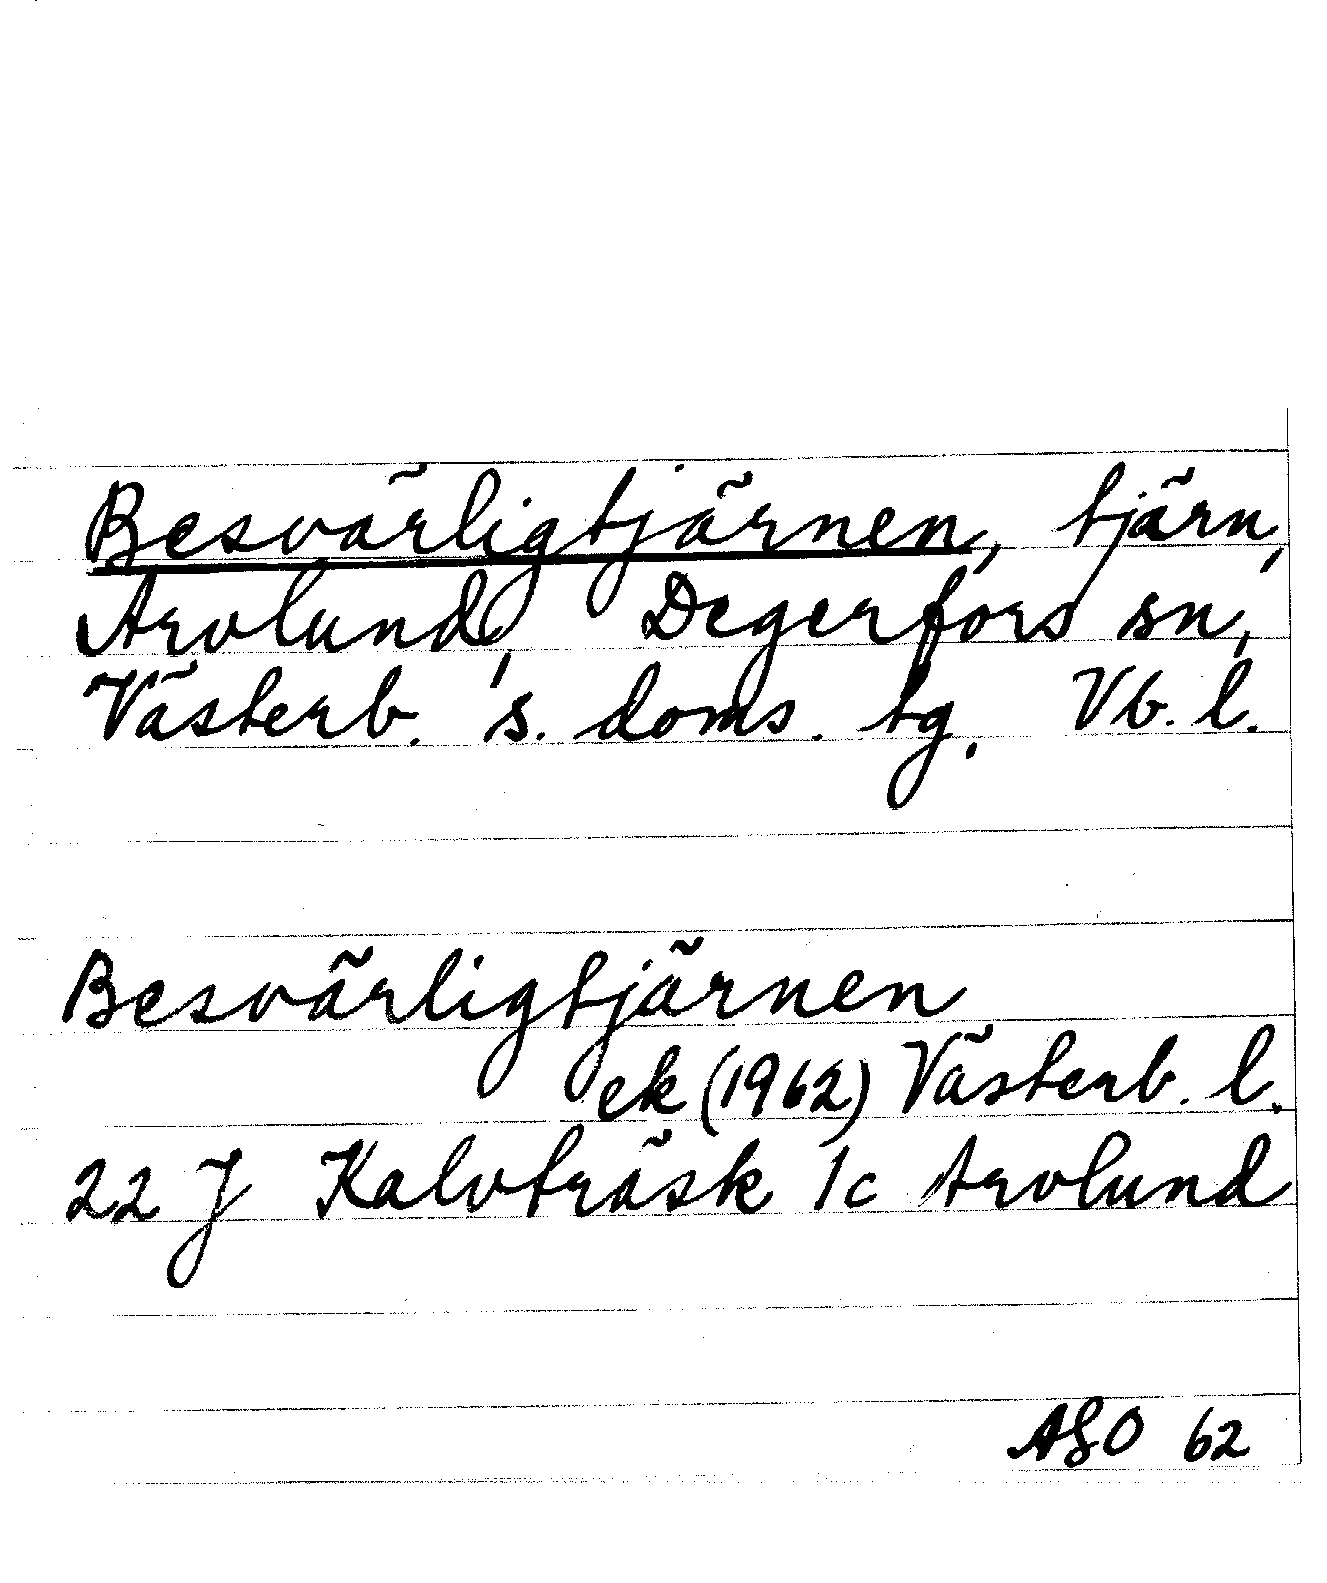 Besvärligtjärnen, tjärn,
Arvlund, Degerfors sn,
Västerb. s. doms. tg. Vb. l.
Besvärligtjärnen
ek (1962) Västerb. l.
22 J Kalvträsk 1c Arvlund
ASO 62